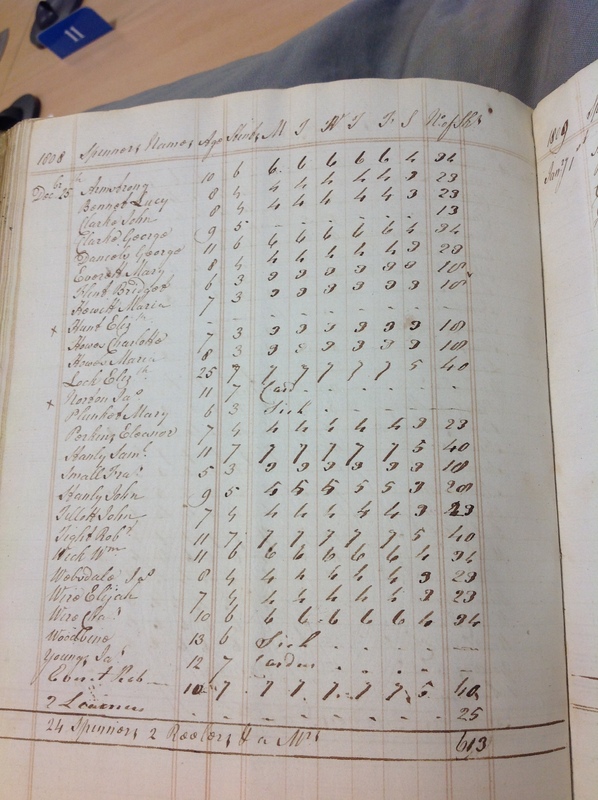 1808 Spinners Names Age Stint M T W T F S No of Sks
Decbr 25th Armstrong 10 6 6 6 6 6 6 4 34
Bennet Lucy 8 4 4 4 4 4 4 3 23
Clarke John 8 4 4 4 4 4 4 3 23
Clarke George 9 5 - - - - - - 13
Daniels George 11 6 6 6 6 6 6 4 34
Everett Mary 8 4 4 4 4 4 4 3 23
Flint Bridget 6 3 3 3 3 3 3 3 18
Howett Maria 7 3 3 3 3 3 3 3 18
x Hunt Elizth - - - - - - - -
Howes Charlotte 7 3 3 3 3 3 3 3 18
Howes Maria 8 3 3 3 3 3 3 3 18
Lock Elizth 25 7 7 7 7 7 7 5 40
Norton Jas 11 7 Card - - - - -
x Plunket Mary 6 3 Sick - - - - -
Perkins Eleanor 7 4 4 4 4 4 4 3 23
Hanly Saml 11 7 7 7 7 7 7 5 40
Small Fras 5 3 3 3 3 3 3 3 18
Hanly John 9 5 5 5 5 5 5 3 28
Tillett John 7 4 4 4 4 4 4 3 23
Tight Robt 11 7 7 7 7 7 7 5 40
Wick Wm 11 6 6 6 6 6 6 4 34
Websdale Jas 8 4 4 4 4 4 4 3 23
Wire Elijah 7 4 4 4 4 4 4 3 23
Wire Jas 10 6 6 6 6 6 6 4 34
Woodbine 13 6 Sick - - - - -
Young Jas 12 7 Carder - - - - -
10 7 7 7 7 7 7 5 40
2 Learners - - - - - - - 25
24 Spinners 2 Reelers & a Mrs 613
1809
Jany 1
11